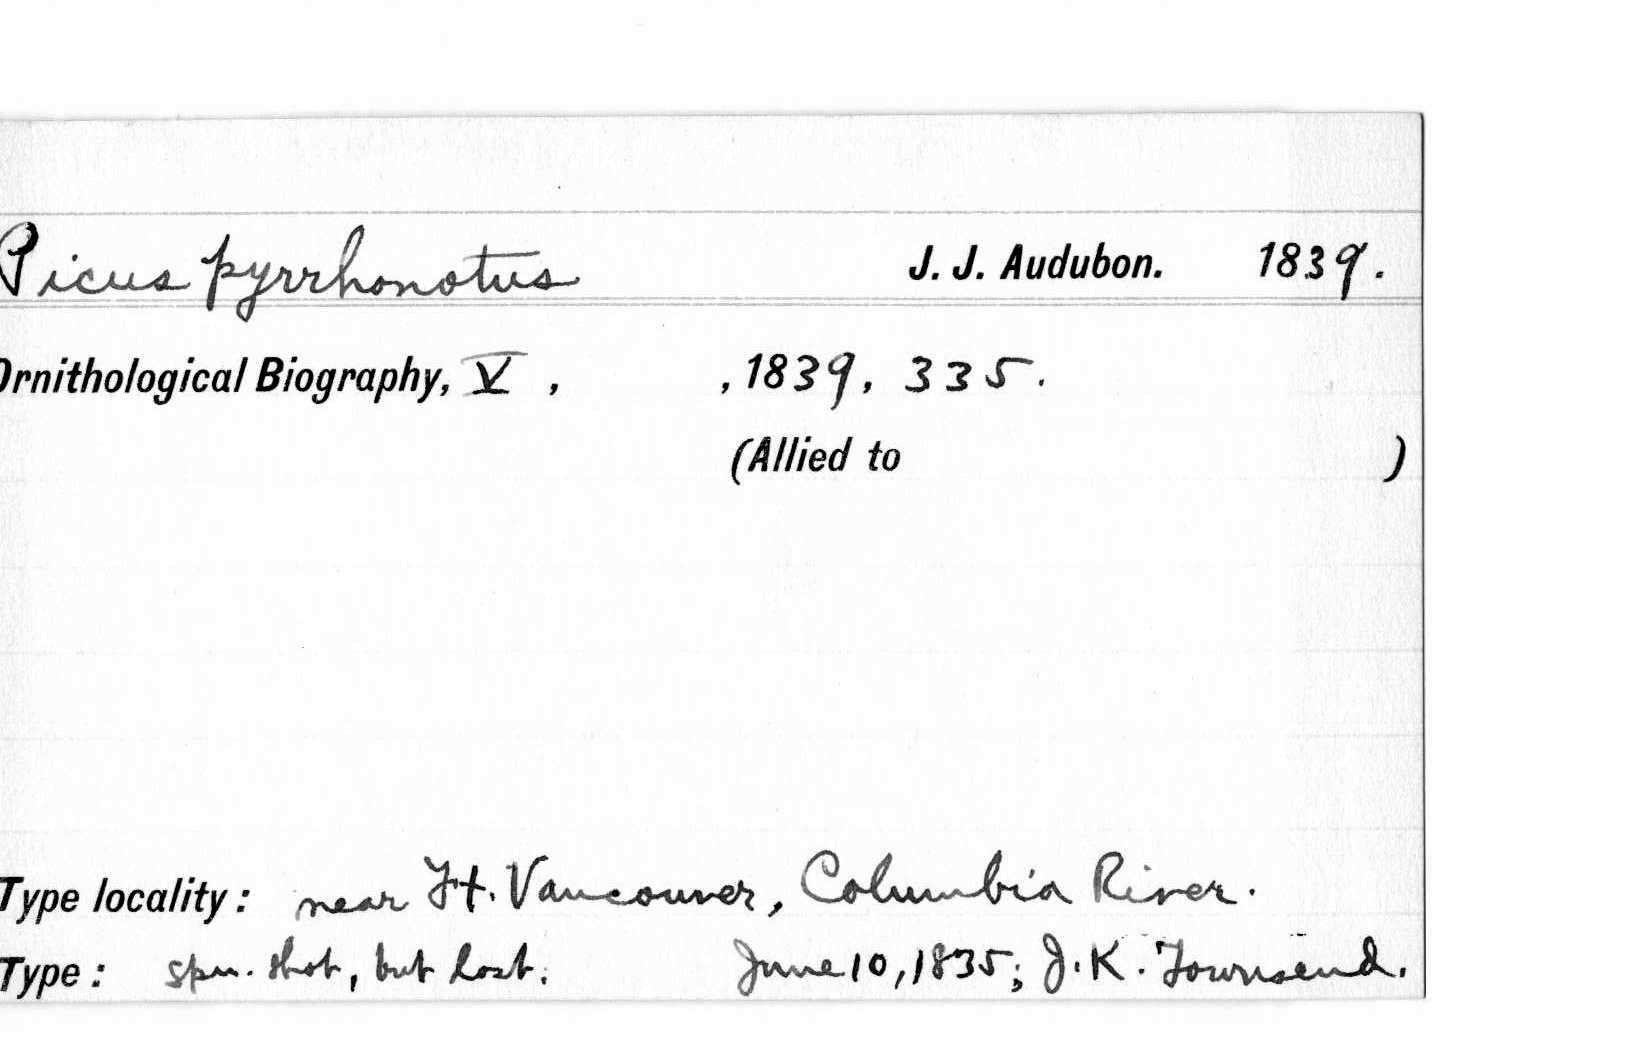 Picus pyrrhonotus J. J. Audubon. 1839.
Ornithological Biography, V , , 1839, 335.
(Allied to )
Type locality: near Ft. Vancouver, Columbia River.
Type: spm. shot, but lost. June 10, 1835; J. K. Townsend.